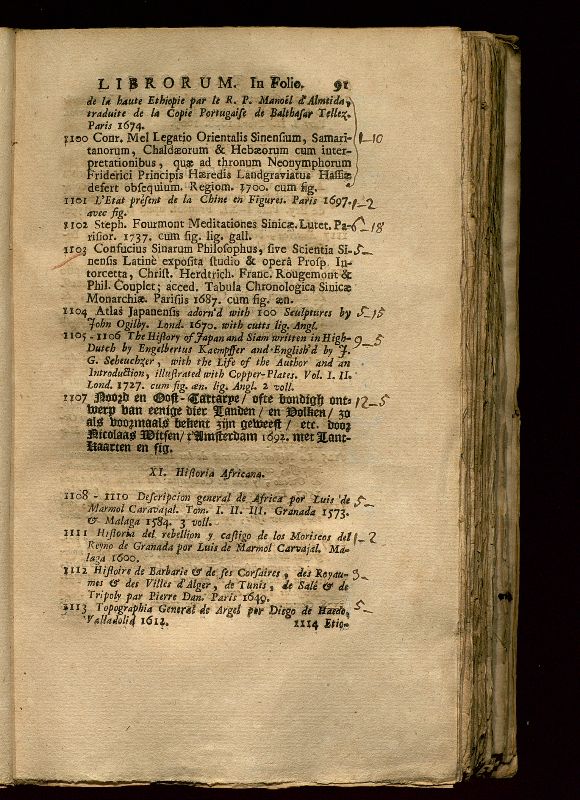 LIBRORUM. In Folio. 91
de la haute Ethiopie par le R. P. Manoël d'Almeida,
traduite de la Copie Portugaise de Balthasar Tellez.
Paris 1674.
1100 Conr. Mel Legatio Orientalis Sinensium, Samari- 1_10
tanorum, Chaldæorum & Hebæorum cum inter-
pretationibus, quæ ad thronum Neonymphorum
Friderici Principis Hæredis Landgraviatus Hassiæ
desert obsequium. Regiom. 1700. cum fig.
1101 L'Etat présent de la Chine en Figures. Paris 1697. 1_2
avec fig.
1102 Steph. Fourmont Meditationes Sinicæ. Lutet. Pa- 6_18
risior. 1737. cum fig. lig. gall.
1103 Confucius Sinarum Philosophus, sive Scientia Si- 5_
nensis Latinè exposita studio & operâ Prosp. In-
torcetta, Christ. Herdtrich. Franc. Rougemont &
Phil. Couplet; acced. Tabula Chronologica Sinicæ
Monarchiæ. Parisiis 1687. cum fig. æn.
1104 Atlas Japanensis adorn'd with 100 Sculptures by 5_15
John Ogilby. Lond. 1670. with cutts lig. Angl.
1105 - 1106 The History of Japan and Siam written in High- 9_5
Dutch by Engelbertus Kaempffer and English'd by J.
G. Scheuchzer, with the Life of the Author and an
Introduction, illustrated with Copper-Plates. Vol. I. II.
Lond. 1727. cum fig. æn. lig. Angl. 2 voll.
1107 Noord en Oost-Tartarye / ofte bondigh ont- 12_5
werp van eenige dier Landen / en Volken / zo
als voormaals bekent zijn geweest / etc. door
Nicolaas Witsen / t'Amsterdam 1692. met Lant-
Kaarten en fig.
XI. Historia Africana.
1108 - 1110 Descripcion general de Africa por Luis de 5_
Marmol Caravajal. Tom. I. II. III. Granada 1573.
& Malaga 1584. 3 voll.
1111 Historia del rebellion y castigo de los Moriscos del 1_2
Reyno de Granada por Luis de Marmol Carvajal. Ma-
laga 1600.
1112 Histoire de Barbarie & de ses Corsaires, des Royau- 3_
mes & des Villes d'Alger, de Tunis, de Salé & de
Tripoly par Pierre Dan. Paris 1649.
1113 Topographia General de Argel por Diego de Haedo, 5_
Valladolid 1612. 1114 Etio-